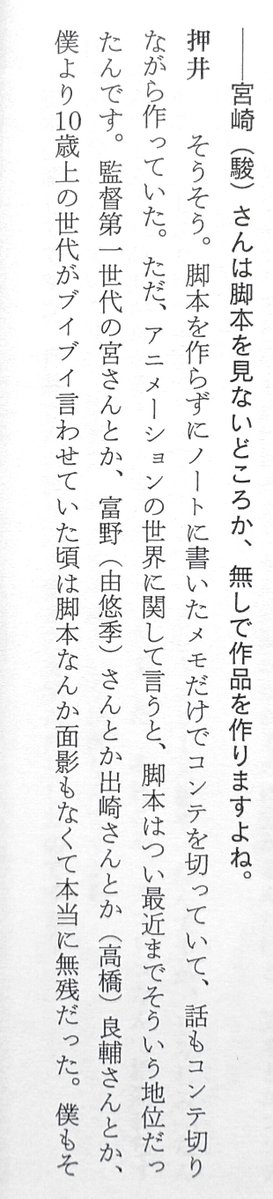 ――宮崎（駿）さんは脚本を見ないどころか、無しで作品を作りますよね。
押井　そうそう。脚本を作らずにノートに書いたメモだけでコンテを切っていて、話もコンテ切り
ながら作っていた。ただ、アニメーションの世界に関して言うと、脚本はつい最近までそういう地位だっ
たんです。監督第一世代の宮さんとか、富野（由悠季）さんとか出崎さんとか（高橋）良輔さんとか、
僕より10歳上の世代がブイブイ言わせていた頃は脚本なんか面影もなくて本当に無残だった。僕もそ